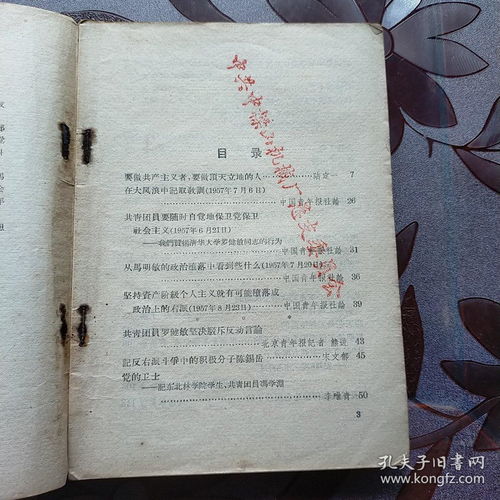 目录
要做共产主义者，要做頂天立地的人……陆定一 7
在大风浪中記取敎訓(1957年7月6日)
……中国青年报社論 26
共青团員要随时自觉地保卫党保卫
社会主义(1957年6月21日)
——我們贊揚清华大学罗健敏同志的行为
……中国青年报社論 31
从馬明敏的政治堕落中看到些什么(1957年7月20日)
……中国青年报社論 36
坚持資产阶級个人主义就有可能堕落成
政治上的右派(1957年8月23日)……中国青年报社論 39
共青团員罗健敏坚决駁斥反动言論
……北京青年报記者 43
記反右派斗爭中的积极分子陈錫岳……宋文郁 45
党的卫士
——記东北林学院学生、共青团員馮学淵
……李維青 50
3
孔夫子旧书网
kongfz.com